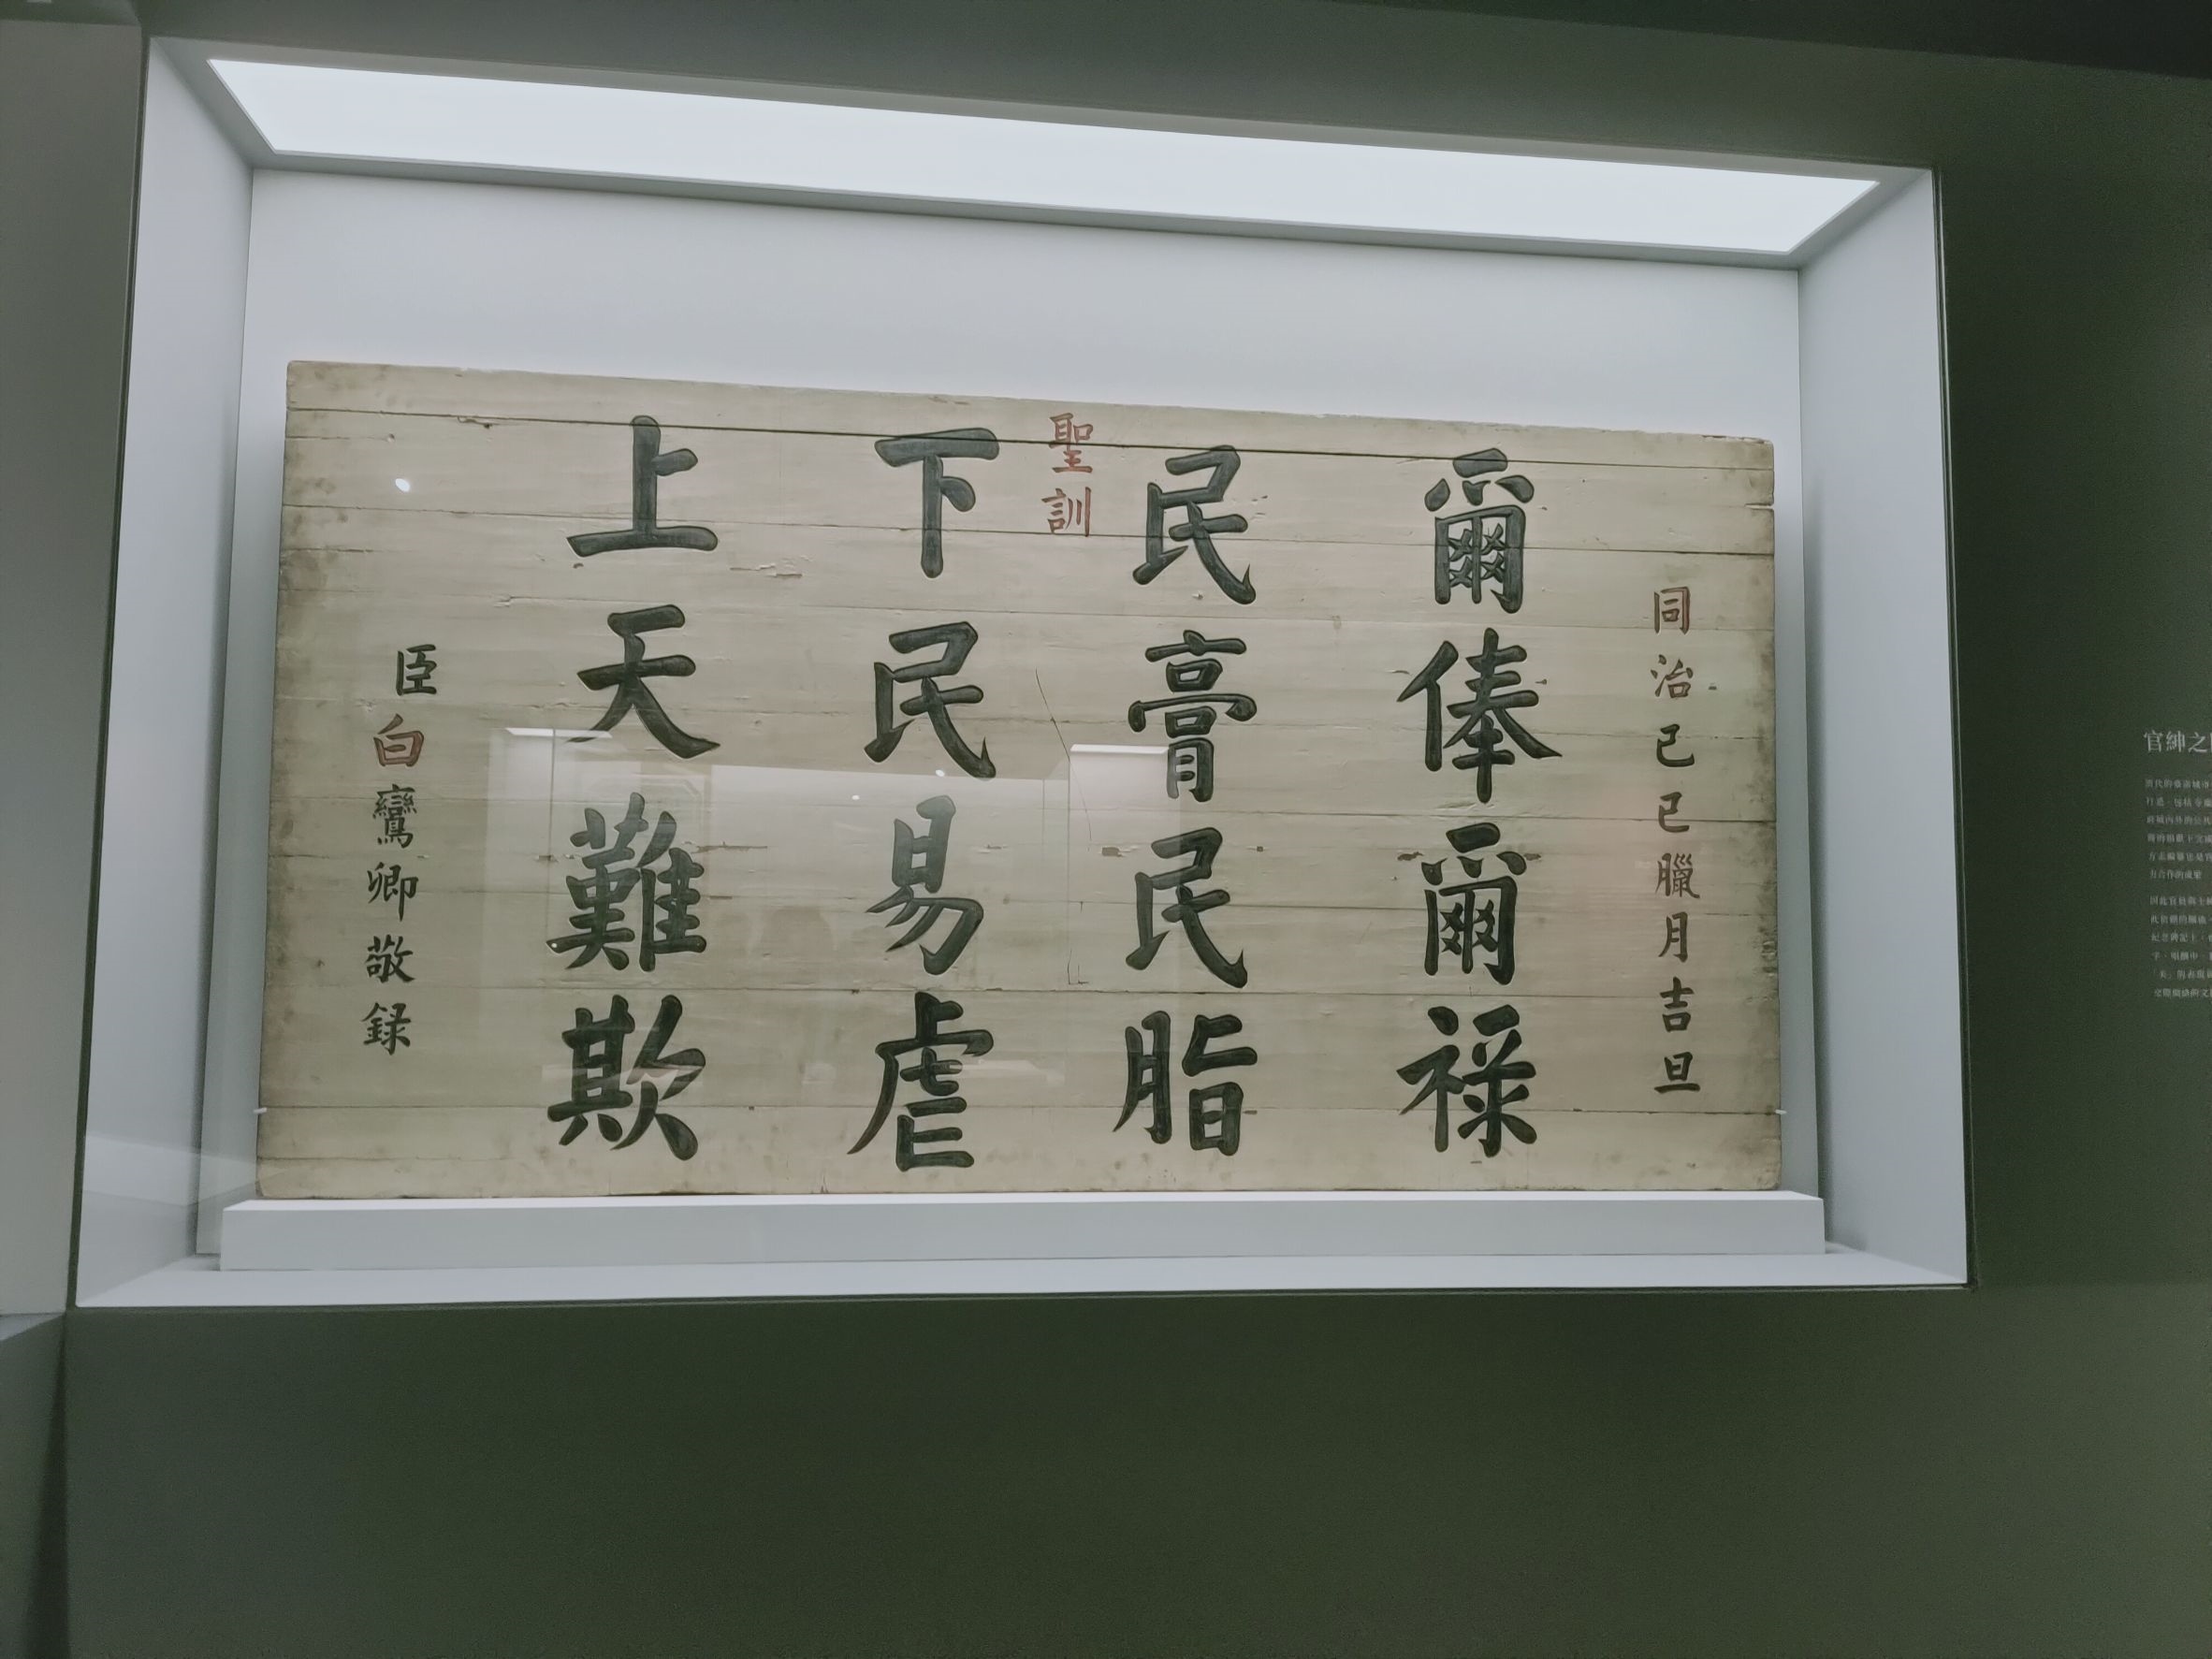 同治己巳臘月吉旦
爾俸爾祿
民膏民脂
聖訓
下民易虐
上天難欺
臣白鸞卿敬録
官紳之